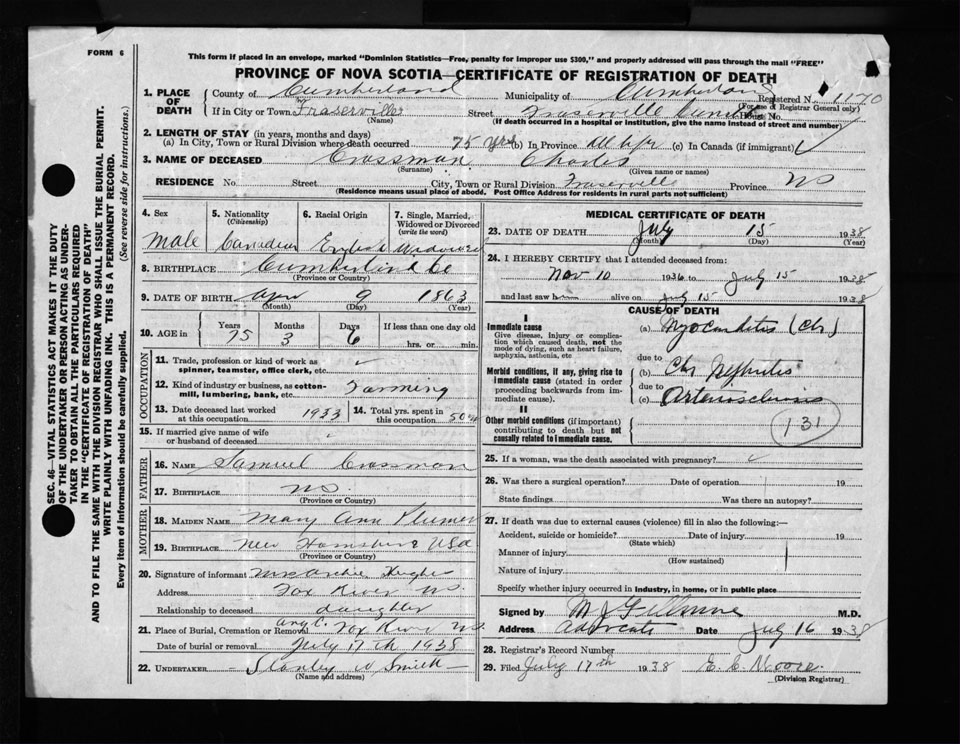 FORM 6
This form if placed in an envelope, marked "Dominion Statistics—Free, penalty for improper use $300," and properly addressed will pass through the mail "FREE"
PROVINCE OF NOVA SCOTIA—CERTIFICATE OF REGISTRATION OF DEATH
SEC. 46—VITAL STATISTICS ACT MAKES IT THE DUTY
OF THE UNDERTAKER OR PERSON ACTING AS UNDER-
TAKER TO OBTAIN ALL THE PARTICULARS REQUIRED
IN THE "CERTIFICATE OF REGISTRATION OF DEATH"
AND TO FILE THE SAME WITH THE DIVISION REGISTRAR WHO SHALL ISSUE THE BURIAL PERMIT.
WRITE PLAINLY WITH UNFADING INK. THIS IS A PERMANENT RECORD.
Every item of information should be carefully supplied. (See reverse side for instructions.)
1. PLACE OF DEATH County of Cumberland Municipality of Cumberland Registered No. 1170
(For use of Registrar General only)
If in City or Town Fraserville (Name) Street Fraserville House No.
(If death occurred in a hospital or institution, give the name instead of street and number)
2. LENGTH OF STAY (in years, months and days)
(a) In City, Town or Rural Division where death occurred 75 yrs (b) In Province All life (c) In Canada (if immigrant)
3. NAME OF DECEASED Crossman Charles
(Surname) (Given name or names)
RESIDENCE No. Street City, Town or Rural Division Fraserville Province NS
(Residence means usual place of abode. Post Office Address for residents in rural parts not sufficient)
4. Sex 5. Nationality (Citizenship) 6. Racial Origin 7. Single, Married, Widowed or Divorced (write the word)
Male Canadian English Widowed
8. BIRTHPLACE Cumberland Co
(Province or County)
9. DATE OF BIRTH Apr 9 1863
(Month) (Day) (Year)
10. AGE in Years Months Days If less than one day old
75 3 6 hrs. or min.
OCCUPATION
11. Trade, profession or kind of work as spinner, teamster, office clerk, etc.
12. Kind of industry or business, as cotton-mill, lumbering, bank, etc. Farming
13. Date deceased last worked at this occupation 1933 14. Total yrs. spent in this occupation 50
15. If married give name of wife or husband of deceased
FATHER
16. NAME Samuel Crossman
17. BIRTHPLACE NS.
(Province or Country)
MOTHER
18. MAIDEN NAME Mary Ann
19. BIRTHPLACE New Hampshire USA
(Province or Country)
20. Signature of informant Mrs Archie
Address Fox River NS.
Relationship to deceased daughter
21. Place of Burial, Cremation or Removal Fox River NS.
Date of burial or removal July 17th 1938
22. UNDERTAKER Stanley W Smith
(Name and address)
MEDICAL CERTIFICATE OF DEATH
23. DATE OF DEATH July 15 1938
(Month) (Day) (Year)
24. I HEREBY CERTIFY that I attended deceased from:
Nov 10 1936 to July 15 1938
and last saw him alive on July 15 1938
CAUSE OF DEATH
I
Immediate cause
Give disease, injury or complication which caused death, not the mode of dying, such as heart failure, asphyxia, asthenia, etc
(a) Myocarditis (Chr)
due to
Morbid conditions, if any, giving rise to immediate cause (stated in order proceeding backwards from immediate cause).
(b) Chr Nephritis
due to
(c) Arteriosclerosis
II
Other morbid conditions (if important) contributing to death but not causally related to immediate cause.
131
25. If a woman, was the death associated with pregnancy?
26. Was there a surgical operation? Date of operation 19
State findings Was there an autopsy?
27. If death was due to external causes (violence) fill in also the following:—
Accident, suicide or homicide? Date of injury 19
(State which)
Manner of injury
(How sustained)
Nature of injury
Specify whether injury occurred in industry, in home, or in public place
Signed by M J Fillmore M.D.
Address Advocate Date July 16 1938
28. Registrar's Record Number
29. Filed July 17th 1938 E. C. Moore.
(Division Registrar)